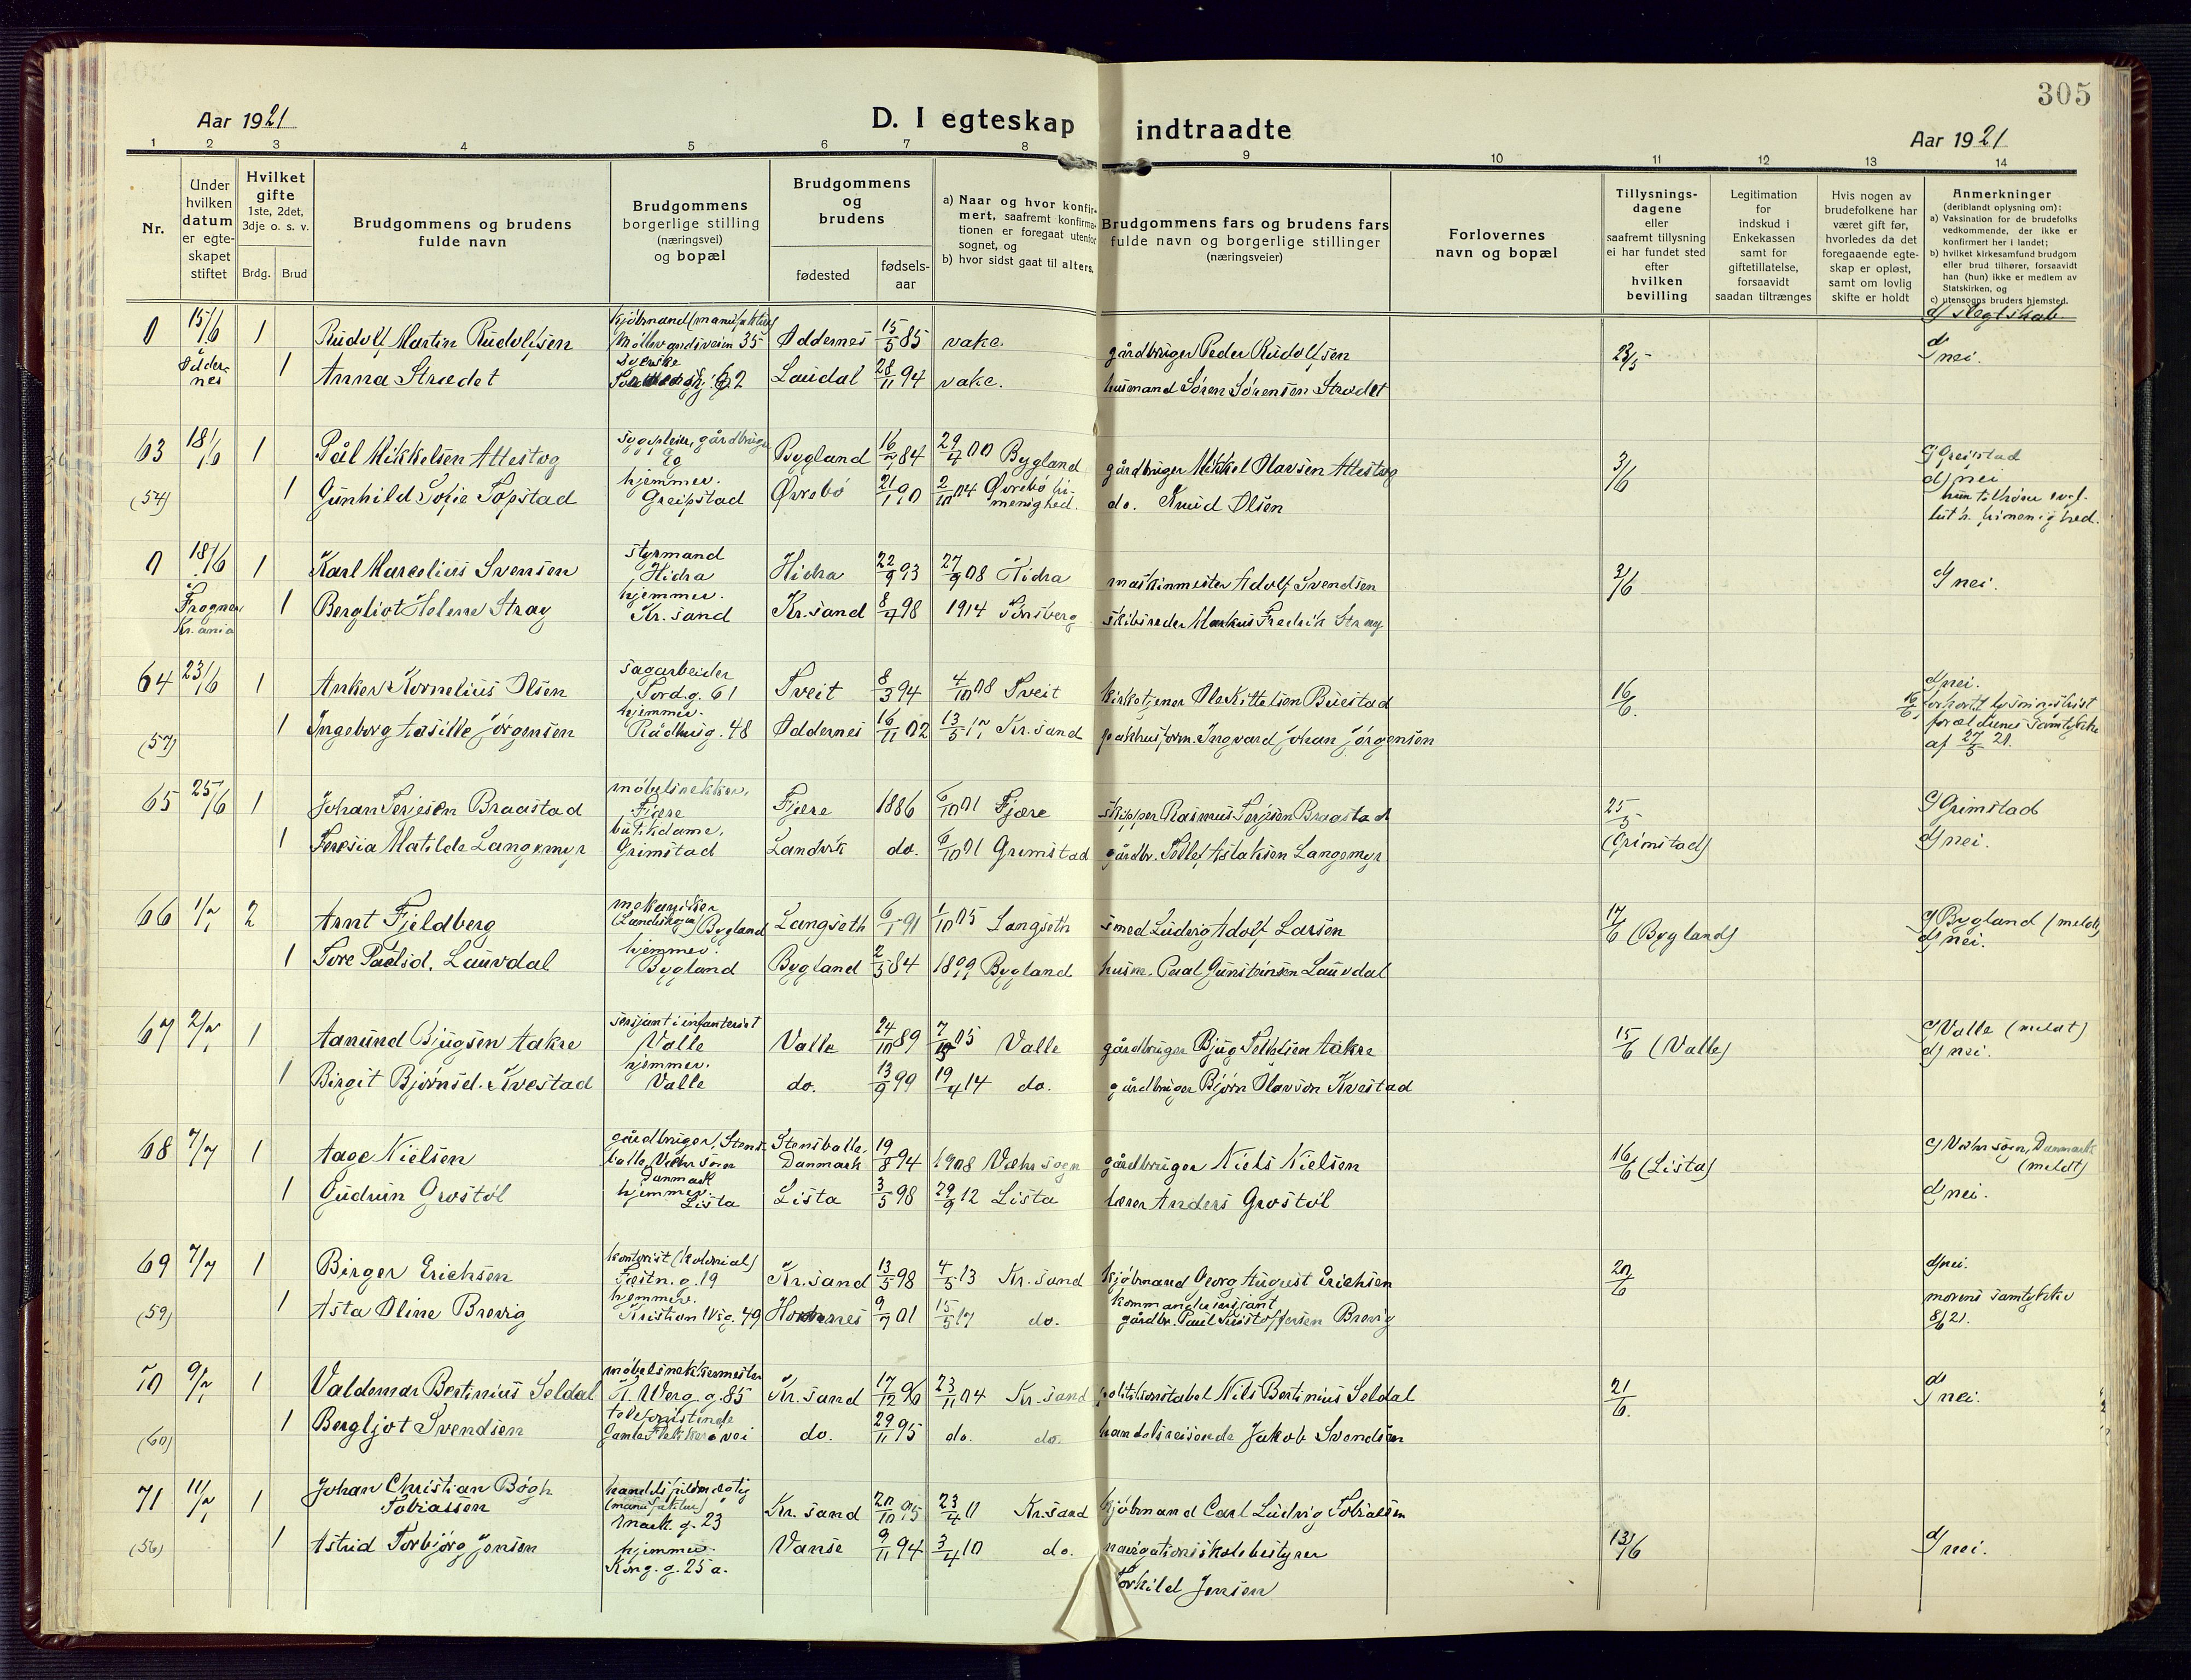 305
Aar 1921
D. I egteskap indtraadte
Aar 1921
1 2 3 4 5 6 7 8 9 10 11 12 13 14
Nr.
Under hvilken datum er egteskapet stiftet
Hvilket gifte 1ste, 2det, 3dje o. s. v.
Brdg. Brud
Brudgommens og brudens fulde navn
Brudgommens borgerlige stilling (næringsvei) og bopæl
Brudgommens og brudens
fødested
fødsels-aar
a) Naar og hvor konfirmert, saafremt konfirmationen er foregaat utenfor sognet, og
b) hvor sidst gaat til alters.
Brudgommens fars og brudens fars fulde navn og borgerlige stillinger (næringsveier)
Forlovernes navn og bopæl
Tillysningsdagene eller saafremt tillysning ei har fundet sted efter hvilken bevilling
Legitimation for indskud i Enkekassen samt for giftetillatelse, forsaavidt saadan tiltrænges
Hvis nogen av brudefolkene har været gift før, hvorledes da det foregaaende egteskap er opløst, samt om lovlig skifte er holdt
Anmerkninger (deriblandt oplysning om):
a) Vaksination for de brudefolks vedkommende, der ikke er konfirmert her i landet;
b) hvilket kirkesamfund brudgom eller brud tilhører, forsaavidt han (hun) ikke er medlem av Statskirken, og
c) utensogns bruders hjemsted.
d) slegtskab
0 15/6 1 Rudolf Martin Rudolfsen kjøbmand (manufaktur) Møllevandsveien 35 Oddernes 15/5 85 vake. gårdbruger Peder Rudolfsen 23/5 d) nei.
Oddernes 1 Anna Strædet 2 Laudal 28/11 94 vake. husmand Søren Sørensen Strædet
63 18/6 1 Pål Mikkelsen Attestog sygepleier, gårdbruger Bygland 16/7 84 29/4 00 Bygland gårdbruger Mikkel Olavsen Attestog 3/6 c) Greipstad
(54) 1 Gunhild Sofie Topstad hjemmev. Greipstad Øvrebø 21/1 90 2/10 04 Øvrebø frimenighed. do. Knud Olsen d) nei
hun tilhører evel. luth. frimenighed.
0 18/6 1 Karl Marcelius Svensen styrmand Hidra Hidra 22/9 93 27/9 08 Hidra maskinmester Adolf Svendsen 3/6 d) nei.
Frogner Kr.ania 1 Bergliot Helene Stray hjemmev. Kr.sand Kr.sand 8/7 98 1914 Tønsberg skibsreder Markus Fredrik Stray
64 23/6 1 Anker Kornelius Olsen sagarbeider Tord.g. 61 Tveit 8/3 94 4/10 08 Tveit kirketjener Ole Kittelsen Buestad 16/6. d) nei.
(57) 1 Ingeborg Lasille Jørgensen hjemmev. Rådhusg. 48 Oddernes 16/11 02 13/5 17 Kr.sand pakhusform. Ingvard Johan Jørgensen
forkortet lysningsfrist forældrenes samtykke af 27/5 21.
65 25/6 1 Johan Terjesen Braastad møbelsnekker, Fjære Fjære 1886 6/10 01 Fjære skipper Rasmus Terjesen Braastad 25/5 (Grimstad) c) Grimstad
1 Teresia Matilde Langemyr butikdame, Grimstad Landvik do. 6/10 01 Grimstad gårdbr. Tellef Aslaksen Langemyr d) nei.
66 1/7 2 Arnt Fjeldberg mekaniker (Landskogen) Bygland Langseth 6/1 91 1/10 05 Langseth smed Ludvig Adolf Larsen 17/6 (Bygland) c) Bygland (meldt)
1 Tore Paalsd. Lauvdal hjemmev. Bygland Bygland 2/5 84 1899 Bygland husm. Paal Gunsteinsen Lauvdal d) nei.
67 2/7 1 Aanund Bjugsen Aakre sersjant i infanteriet Valle Valle 24/10 89 7/10 05 Valle gårdbruger Bjug Tellefsen Aakre 15/6 (Valle) c) Valle (meldt)
1 Birgit Bjørnsd. Kvestad hjemmev. Valle do. 13/9 99 19/4 14 do. gårdbruger Bjørn Olavson Kvestad d) nei.
68 7/7 1 Aage Nielsen gårdbruger, Stensballe, Væhr sogn Danmark Stensballe Danmark 19/8 94 1908 Væhr sogn gårdbruger Niels Nielsen 16/6 (Lista) c) Væhr sogn, Danmark (meldt)
1 Gudrun Grostøl hjemmev. Lista Lista 3/5 98 29/9 12 Lista lærer Anders Grostøl d) nei.
69 7/7 1 Birger Erichsen kontorist (kolonial) Festn.g. 19 Kr.sand 13/5 98 4/5 13 Kr.sand kjøbmand Georg August Erichsen 20/6 d) nei.
(59) 1 Asta Oline Brevig hjemmev. Kristian IVsg. 49 Hornnes 9/7 01 15/5 17 do. kommandersersjant gårdbr. Paul Kristoffersen Brevig morens samtykke 8/6 21.
70 9/7 1 Valdemar Bertinius Seldal møbelsnekkermester H. Werg. g. 85 Kr.sand 17/12 90 23/11 04 Kr.sand politikonstabel Nils Bertinius Seldal 21/6. d) nei.
(60) 1 Bergljot Svendsen telefonistinde Gamle Flekkerøvei do. 29/11 95 do. do. handelsreisende Jakob Svendsen
71 11/7 1 Johan Christian Bøgh Tobiassen handelsfuldmægtig (manufaktur) Mark. g. 23 Kr.sand 20/10 95 23/4 11 Kr.sand kjøbmand Carl Ludvig Tobiassen
(56) 1 Astrid Torbjørg Jensen hjemmev. Kong. g. 25 a. Vanse 9/11 94 3/4 10 do. navigationsskolebestyrer Torkild Jensen 13/6 d) nei.